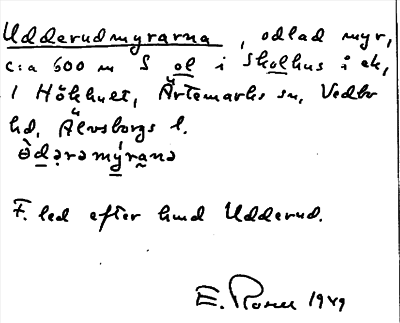 Udderudmyrarna, odlad myr,
c:a 600 m S ol i Skolhus i ek,
1 Hökhult, Ärtemarks sn, Vedbo
hd, Älvsborgs l.
F. led efter hmd Udderud.
E. 1949